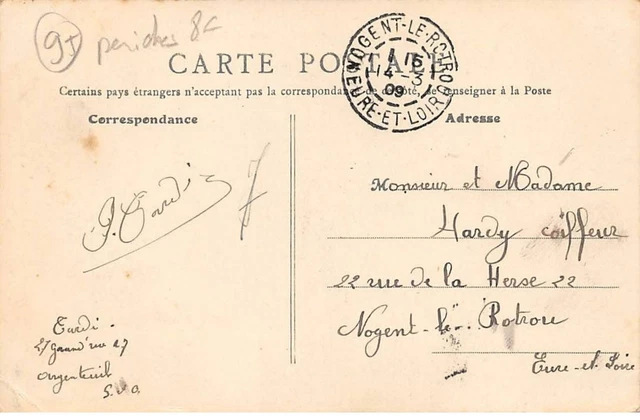 95
8€
CARTE POSTALE
NOGENT-LE-ROTROU
1 15
14 - 3
09
EURE-ET-LOIR
Certains pays étrangers n'acceptant pas la correspondance de ce côté, se renseigner à la Poste
Correspondance
Adresse
7
Monsieur et Madame
Hardy coiffeur
22 rue de la Herse 22
Nogent-le-Rotrou
Eure-et-Loire
Tardi.
27 Grand'rue 27
Argenteuil
S.&O.